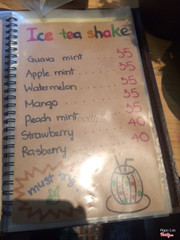 Ice tea shake
Guava mint ... 35
Apple mint .... 35
Watermelon .... 35
Mango ..... 35
Peach mint ..... 40
Strawberry ..... 40
Rasberry
must try